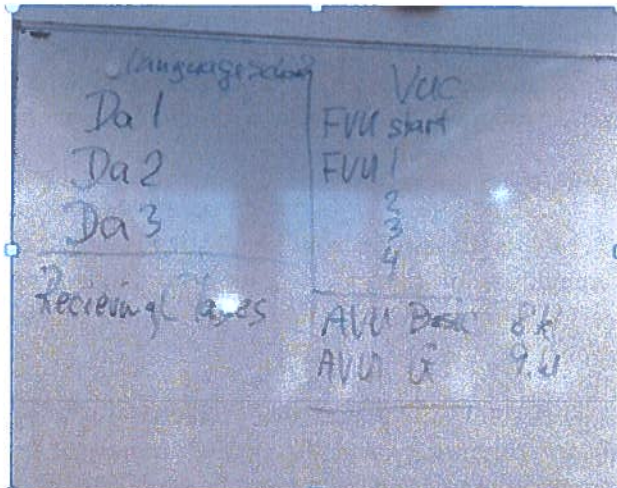 Languageschool
Da 1
Da 2
Da 3
Recieving Classes
VUC
FVU start
FVU 1
2
3
4
AVU Basic 8 kl
AVU G 9. kl